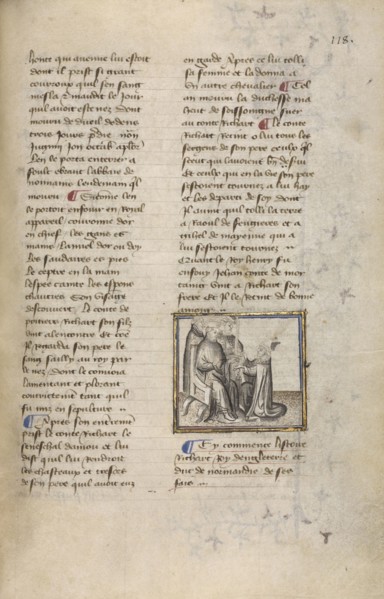 118.
honte qui avenue lui estoit
dont il prist si grant
courroux quil son sang
mesla Et maudit le Jour
quil avoit este nez dont
mourut de dueil dedens
trois Jours
Len le porta enterrer a
abbaie de
normams lendemain quil
mouru Et come len
le portoit enfouir en Royal
appareil couronne dor
en chief les gans es
mains Lannel dor ou doy
Les saudaires es pies
Le ceptre en la main
lespee cainte les espe
chauciees Son visage
descouvert Le conte de
poitiers Richart son filz
vint alencontre Et come
Il regarda son pere le
sang sailly au roy par
le nez dont le convoia
lamentant et plorant
tant quil
fu mis en sepulture
Apres son enterrement
prist le conte Richart le
seneschal danjou et lui
dist quil lui rendroit
les chasteaux et tresors
de son pere quil avoit eus
en garde Apres ce lui tolli
sa femme et la donna a
un autre chevalier Cel
an mouru la duchesse ma
heut de seur
au conte Richart Le conte
Richart Retint o lui tous les
sergens de son pere ceulx quil
sceut qui lavoient bien servi
Et ceulx qui en la vie son pere
sestoient tournez a lui hay
et les departi de soy dont
Il avint quil tolli la terre
a Raoul de feugieres et a
de mayenne qui a
lui sestoient tournez
Quant le Roy henry fu
enfouy Jehan conte de mor
taing vint a Richart son
frere Et Il le Retint de bonne
amour
Cy commence listoire
Richart Roy dengleterre et
duc de normandie de ses
fais